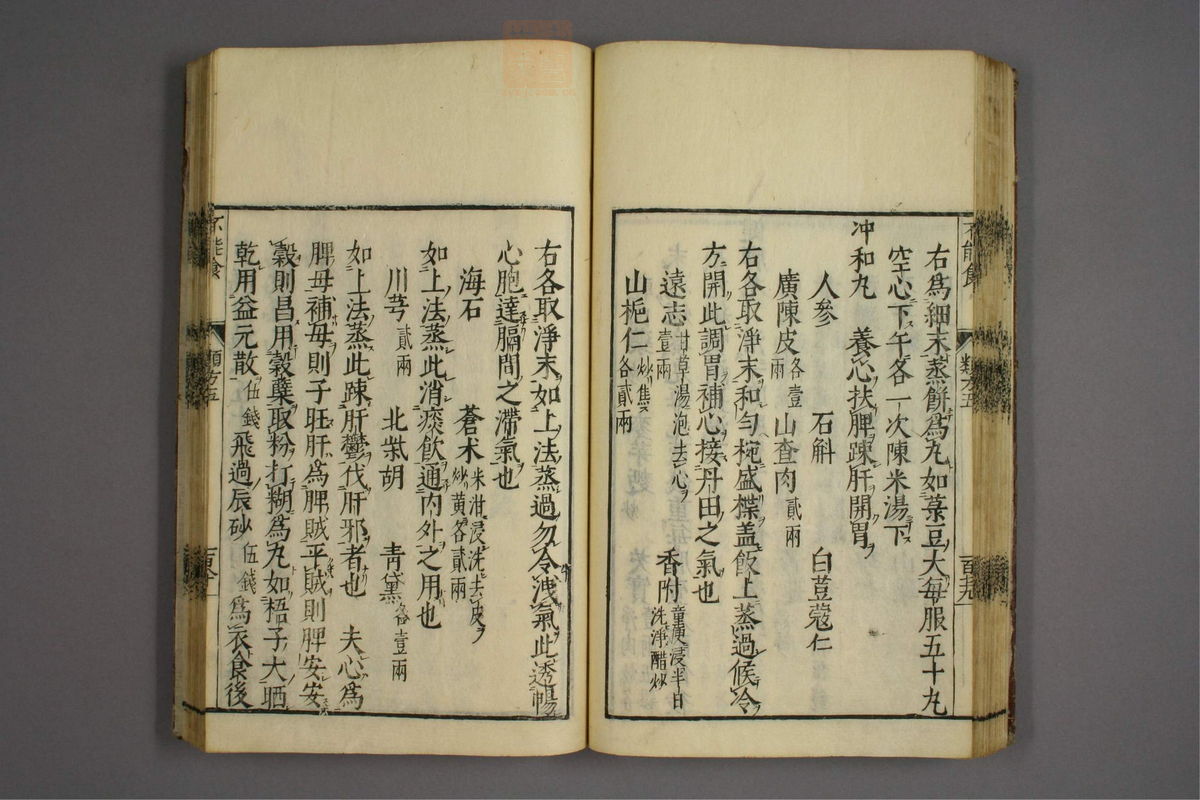 不能食 類方五
右爲細末蒸餅爲丸如菉豆大每服五十丸
空心下午各一次陳米湯下
冲和丸 養心扶脾踈肝開胃
人參 石斛 白荳蔻仁
廣陳皮各壹兩 山查肉貳兩
右各取淨末和勻椀盛楪盖飯上蒸過候冷
方開此調胃補心接丹田之氣也
遠志壹兩甘草湯泡去心 香附童溲浸半日洗淨醋炒
山梔仁炒焦各貳兩
右各取淨末如上法蒸過勿令洩氣此透暢
心胞達膈間之滯氣也
海石 蒼术米泔浸洗去皮炒黃各貳兩
如上法蒸此消痰飲通内外之用也
川芎貳兩 北柴胡 青黛各壹兩
如上法蒸此踈肝鬱伐肝邪者也 夫心爲
脾母補母則子旺肝爲脾賊平賊則脾安安
穀則昌用穀蘗取粉打糊爲丸如梧子大晒
乾用益元散伍錢飛過辰砂伍錢爲衣食後
不能食 類方五